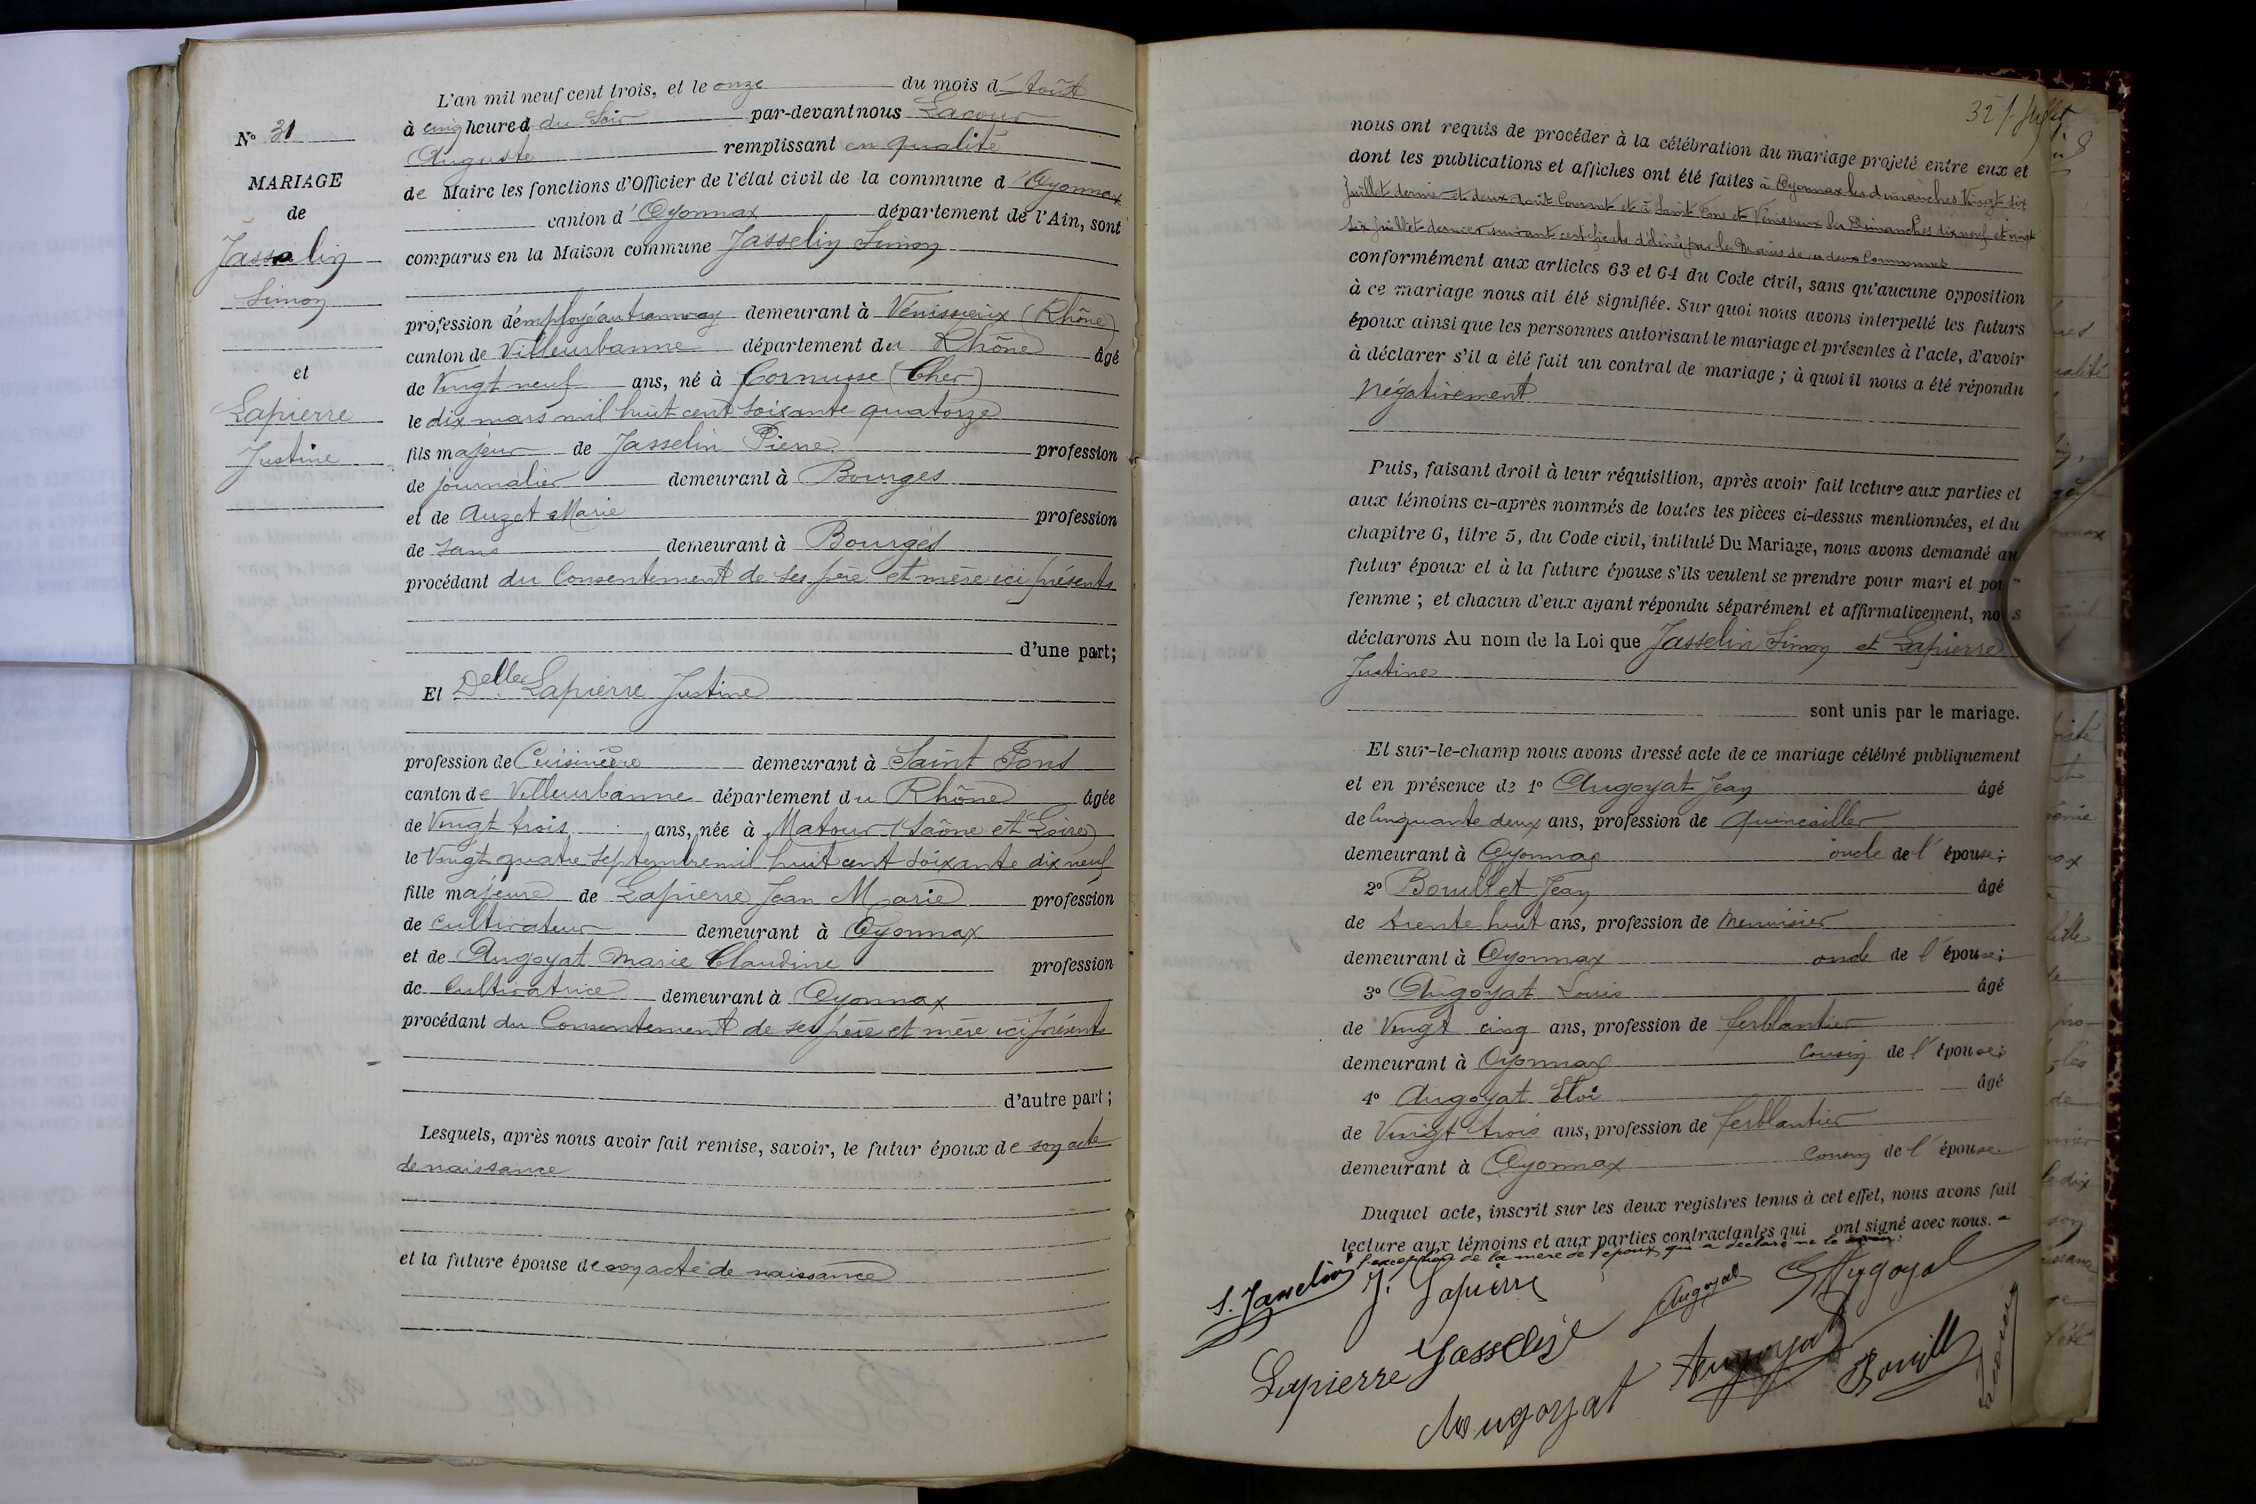 N° 31
MARIAGE
de
Jasselin
Simon
et
Lapierre
Justine
L'an mil neuf cent trois, et le onze du mois d'Août
à cinq heures du Soir par-devant nous Lacour
Auguste remplissant en qualité
de Maire les fonctions d'Officier de l'état civil de la commune d'Oyonnax
canton d'Oyonnax département de l'Ain, sont
comparus en la Maison commune Jasselin Simon
profession d'employé au tramway demeurant à Vénissieux (Rhône)
canton de Villeurbanne département du Rhône âgé
de Vingt neuf ans, né à Cornusse (Cher)
le dix mars mil huit cent soixante quatorze
fils majeur de Jasselin Pierre profession
de journalier demeurant à Bourges
et de Auzet Marie profession
de sans demeurant à Bourges
procédant du Consentement de ses père et mère ici présents
d'une part;
Et Delle Lapierre Justine
profession de Cuisinière demeurant à Saint Fons
canton de Villeurbanne département du Rhône âgée
de Vingt trois ans, née à Matour (Saône et Loire)
le Vingt quatre Septembre mil huit cent soixante dix neuf
fille majeure de Lapierre Jean Marie profession
de cultivateur demeurant à Oyonnax
et de Augoyat Marie Claudine profession
de Cultivatrice demeurant à Oyonnax
procédant du Consentement de ses père et mère ici présents
d'autre part;
Lesquels, après nous avoir fait remise, savoir, le futur époux de son acte
de naissance
et la future épouse de son acte de naissance
32
nous ont requis de procéder à la célébration du mariage projeté entre eux et
dont les publications et affiches ont été faites à Oyonnax les dimanches Vingt six
Juillet dernier et deux Août Courant et à Saint Fons et Vénissieux les Dimanches dix neuf et vingt
six Juillet dernier suivant certificats délivrés par les Maires de ces deux Communes
conformément aux articles 63 et 64 du Code civil, sans qu'aucune opposition
à ce mariage nous ait été signifiée. Sur quoi nous avons interpellé les futurs
époux ainsi que les personnes autorisant le mariage et présentes à l'acte, d'avoir
à déclarer s'il a été fait un contrat de mariage; à quoi il nous a été répondu
Négativement
Puis, faisant droit à leur réquisition, après avoir fait lecture aux parties et
aux témoins ci-après nommés de toutes les pièces ci-dessus mentionnées, et du
chapitre 6, titre 5, du Code civil, intitulé Du Mariage, nous avons demandé au
futur époux et à la future épouse s'ils veulent se prendre pour mari et pour
femme; et chacun d'eux ayant répondu séparément et affirmativement, nous
déclarons Au nom de la Loi que Jasselin Simon et Lapierre
Justine
sont unis par le mariage.
Et sur-le-champ nous avons dressé acte de ce mariage célébré publiquement
et en présence de 1° Augoyat Jean âgé
de Cinquante deux ans, profession de Quincailler
demeurant à Oyonnax oncle de l'épouse;
2° Bouillet Jean âgé
de trente huit ans, profession de Menuisier
demeurant à Oyonnax oncle de l'épouse;
3° Augoyat Louis âgé
de Vingt cinq ans, profession de ferblantier
demeurant à Oyonnax Cousin de l'épouse;
4° Augoyat Eloi âgé
de Vingt trois ans, profession de ferblantier
demeurant à Oyonnax Cousin de l'épouse
Duquel acte, inscrit sur les deux registres tenus à cet effet, nous avons fait
lecture aux témoins et aux parties contractantes qui ont signé avec nous.
à l'exception de la mère de l'époux qui a déclaré ne le
S. Jasselin J. Lapierre Augoyat Augoyat
Lapierre Jasselin Augoyat Augoyat Bouillet Lacour